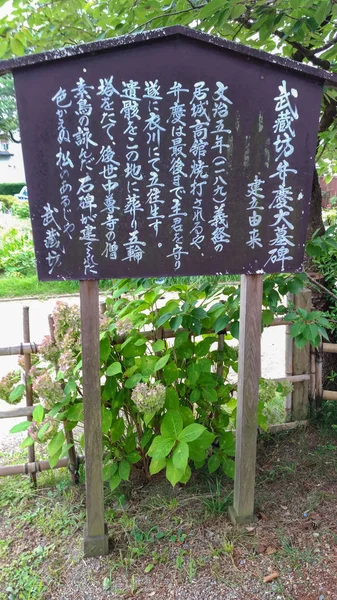 武蔵坊弁慶大墓碑
建立由来
文治五年(一一八九)義経の
居城高館焼打ちされるや
弁慶は最後まで主君を守り
遂に衣川にて立往生す。
遺骸をこの地に葬り五輪
塔をたて後世中尊寺の僧
素鳥の詠んだ石碑が建てられた
色かえぬ松のあるじや
武蔵坊